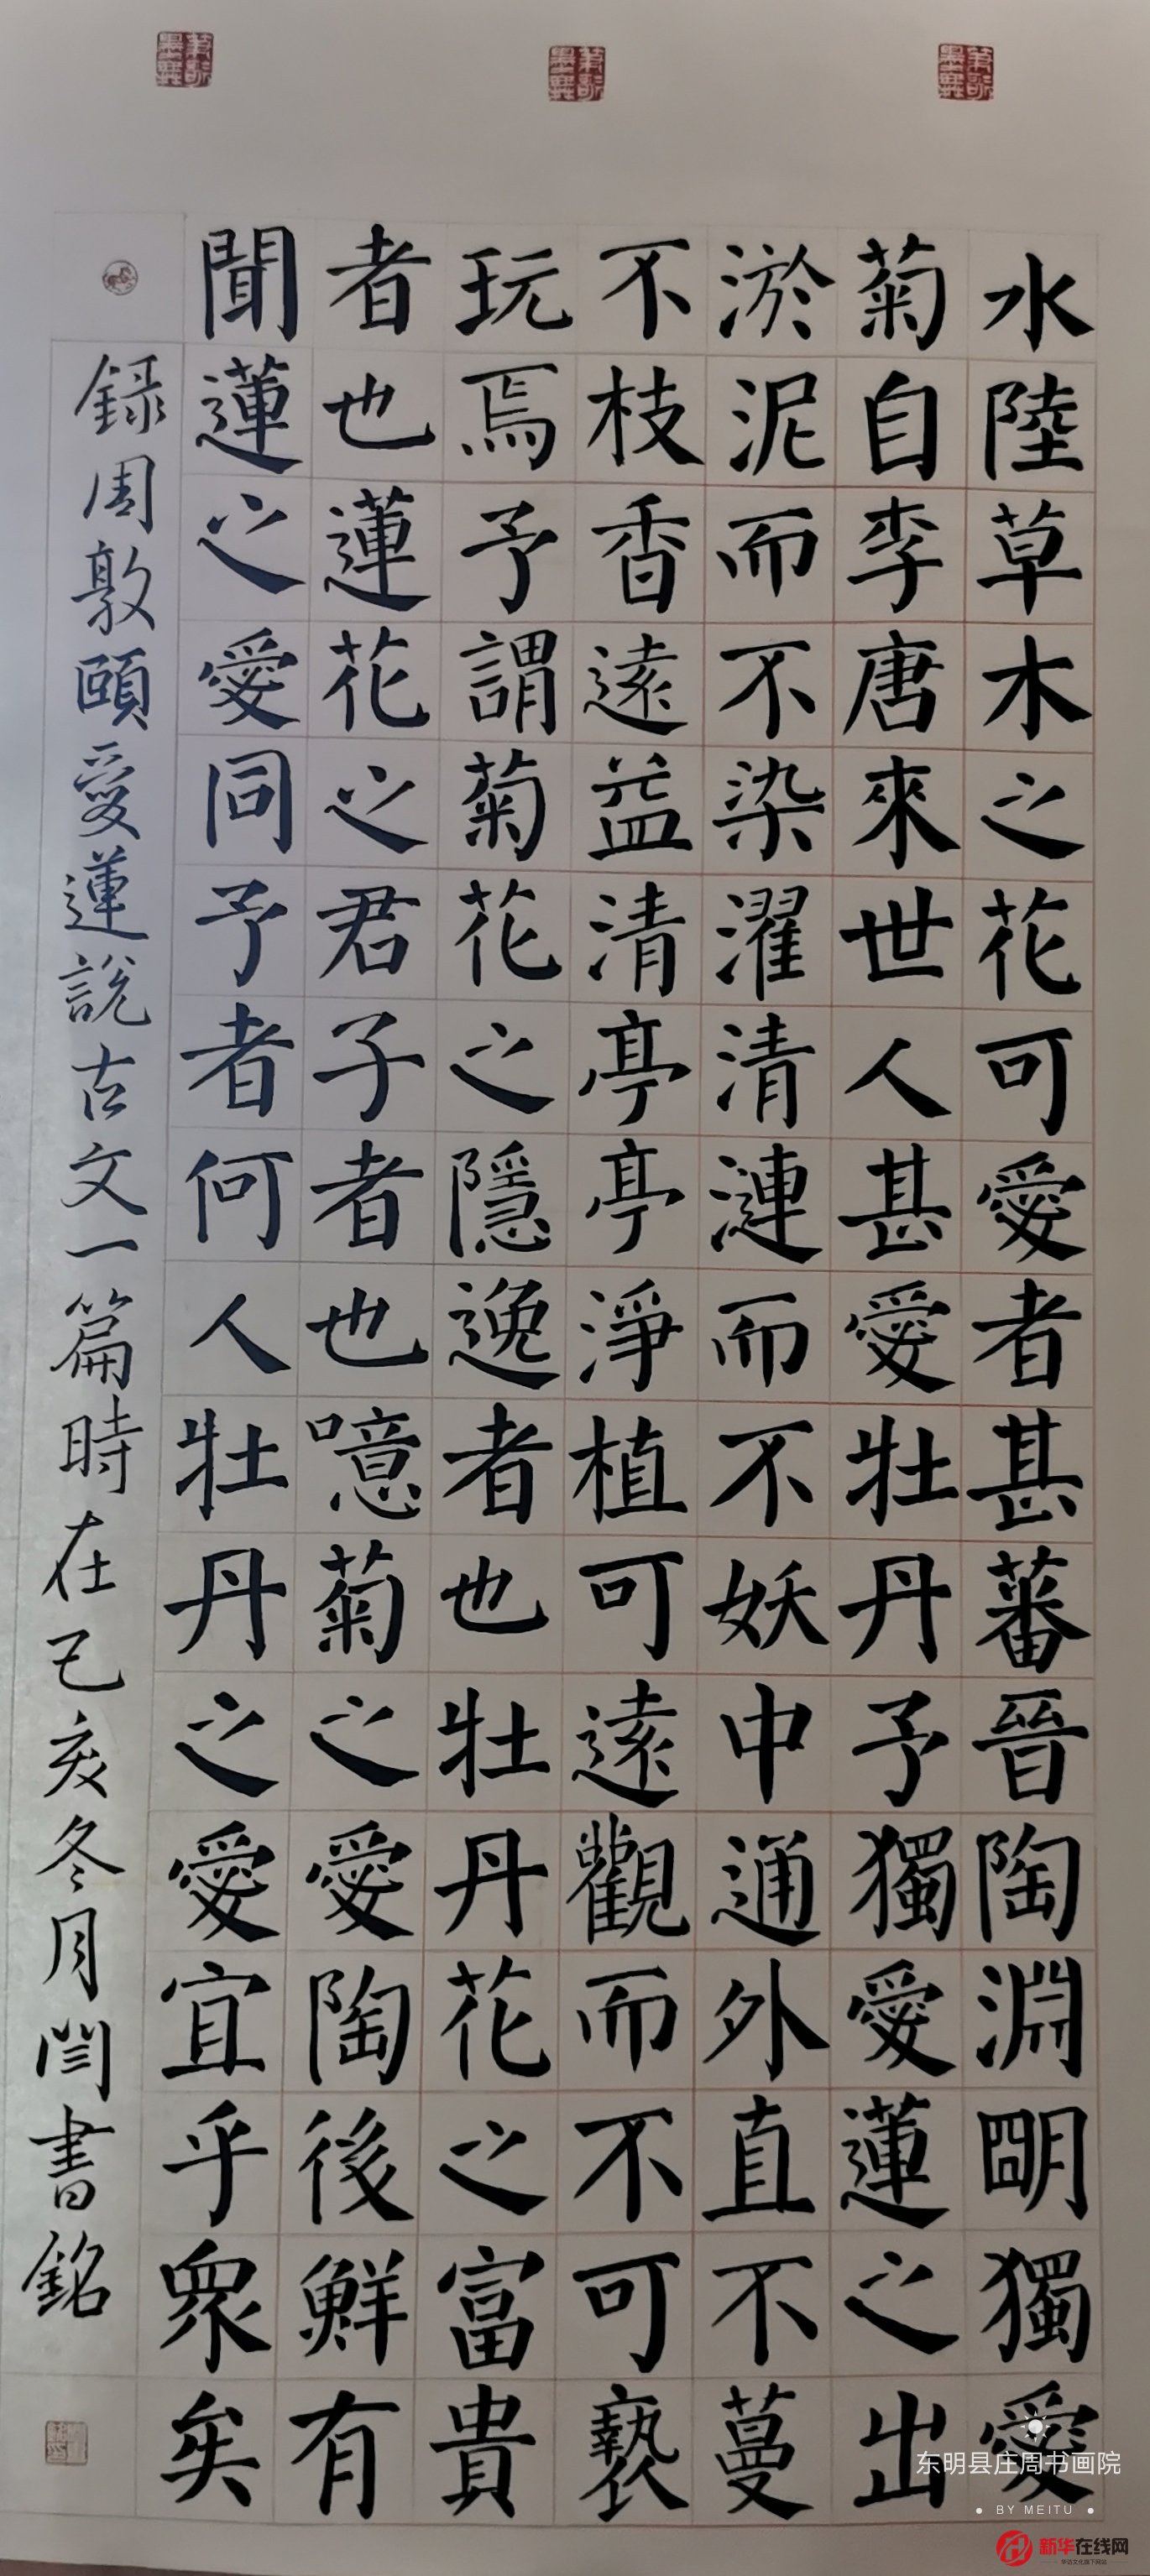 水陸草木之花可愛者甚蕃晉陶淵明獨愛
菊自李唐來世人甚愛牡丹予獨愛蓮之出
淤泥而不染濯清漣而不妖中通外直不蔓
不枝香遠益清亭亭淨植可遠觀而不可褻
玩焉予謂菊花之隱逸者也牡丹花之富貴
者也蓮花之君子者也噫菊之愛陶後鮮有
聞蓮之愛同予者何人牡丹之愛宜乎眾矣
録周敦頤愛蓮說古文一篇時在己亥冬月閆書銘
东明县庄周书画院
BY MEITU
新华在线网